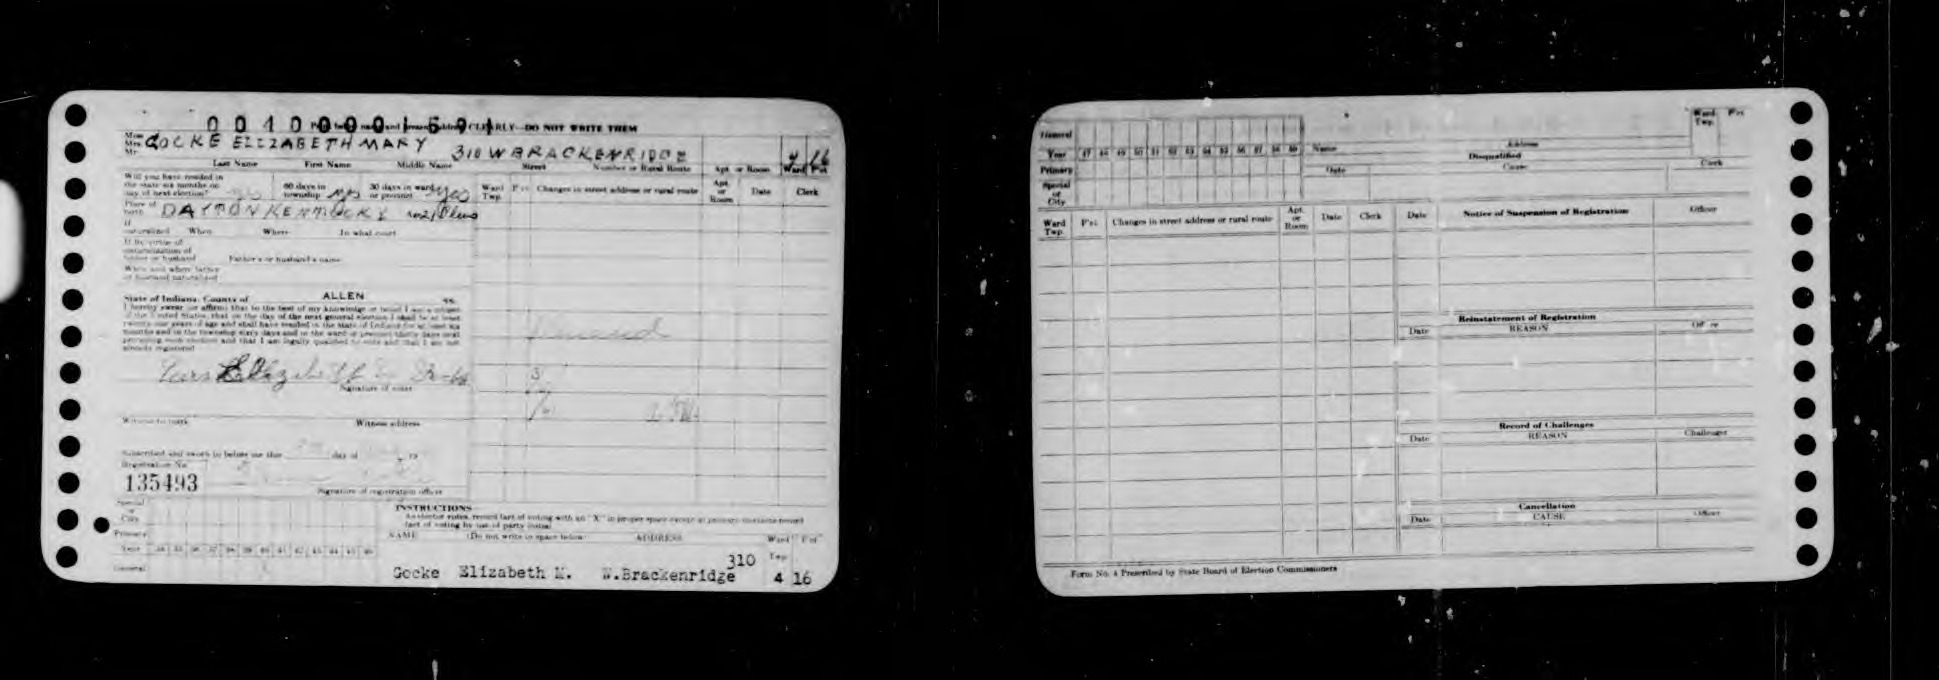 00400001591
CLEARLY—DO NOT WRITE THEM
Miss
Mrs. GOCKE ELIZABETH MARY 310 W BRACKENRIDGE 4 16
Mr.
Last Name First Name Middle Name Street Number or Rural Route Apt. or Room Ward Pct
Will you have resided in
the state six months on
day of next election? yes 60 days in township yes 30 days in ward or precinct yes
Ward Twp. Pct Changes in street address or rural route Apt. or Room Date Clerk
Place of birth DAYTON KENTUCKY
If naturalized When Where In what court
If by virtue of
naturalization of
father or husband Father's or husband's name
When and where father
or husband naturalized
State of Indiana, County of ALLEN ss.
I hereby swear (or affirm) that to the best of my knowledge or belief I am a citizen
of the United States, that on the day of the next general election I shall be at least
twenty-one years of age and shall have resided in the State of Indiana for at least six
months and in the township sixty days and in the ward or precinct thirty days next
preceding such election and that I am legally qualified to vote and that I am not
already registered
Signature of voter
Witness to mark Witness address
Subscribed and sworn to before me this day of 19
Registration No.
135493
Signature of registration officer
Special or City
Primary
Year 34 35 36 37 38 39 40 41 42 43 44 45 46
General
INSTRUCTIONS
As elector votes, record fact of voting with an "X" in proper space except at primary elections record
fact of voting by use of party initial
NAME (Do not write in space below) ADDRESS Ward Twp. Pct
Gocke Elizabeth M. 310 W.Brackenridge 4 16
General
Year 47 48 49 50 51 52 53 54 55 56 57 58 59
Primary
Special or City
Name Address Ward Twp. Pct
Disqualified
Date Cause Clerk
Ward Twp. Pct Changes in street address or rural route Apt. or Room Date Clerk
Date Notice of Suspension of Registration Officer
Reinstatement of Registration
Date REASON Officer
Record of Challenges
Date REASON Challenger
Cancellation
Date CAUSE Officer
Form No. 4 Prescribed by State Board of Election Commissioners